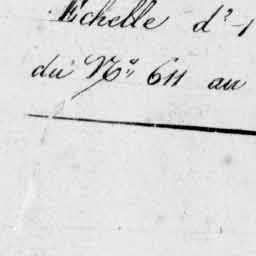 Echelle d'
du N° 611 au